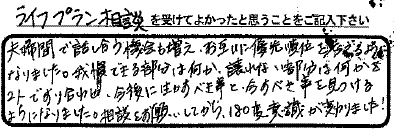 ライフプラン相談を受けてよかったと思うことをご記入下さい
夫婦間で話し合う機会も増え、お互いに優先順位を考えるように
なりました。我慢できる部分は何か、譲れない部分は何かを
2人で折り合わせ、今後に生かすべき事と今すべき事を見つける
ようになりました。相談をお願いしてから、180度意識が変わりました!